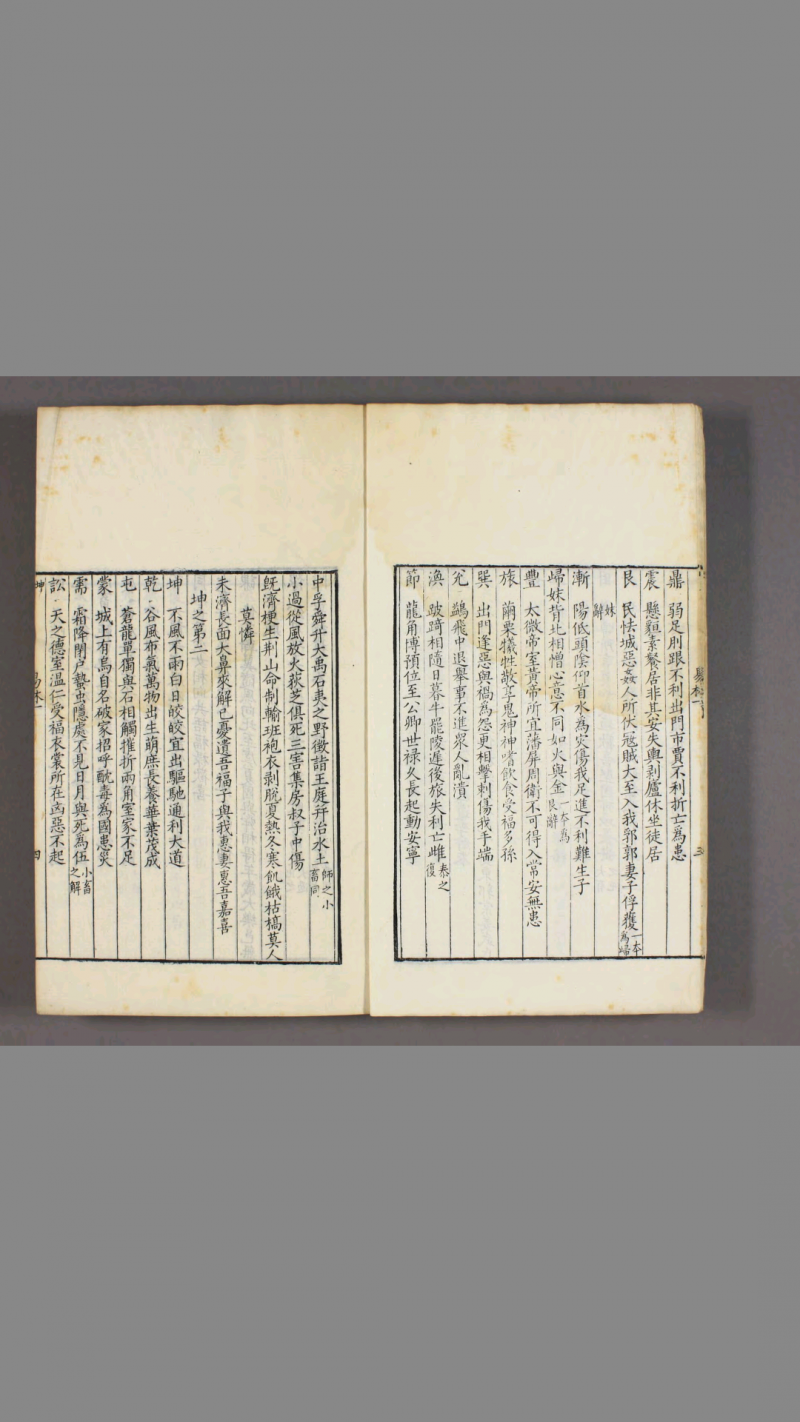 鼎 弱足刖跟不利出門市賈不利折亡為患
震 懸貆素餐居非其安失輿剥廬休坐徒居
艮 民怯城惡姦人所伏寇賊大至入我郛郭妻子俘獲一本為歸
妹辭
漸 陽低頭陰仰首水為災傷我足進不利難生子
歸妹背北相憎心意不同如火與金一本為艮辭
豐 太微帝室黄帝所宜藩屏周衛不可得入常安無患
旅 繭栗犧牲敬享鬼神神嗜飲食受福多孫
巽 出門逢惡與禍為怨更相擊刺傷我手端
兊 鷁飛中退舉事不進衆人亂潰
渙 跛踦相隨日暮牛罷陵遲後旅失利亡雌泰之復
節 龍角博顙位至公卿世禄久長起動安寧
中孚舜升大禹石夷之野徵詣王庭拜治水土師之小畜同
小過從風放火荻芝俱死三害集房叔子中傷
既濟梗生荆山命制輸班袍衣剥脱夏熱冬寒飢餓枯槁莫人
莫憐
未濟長面大鼻來解己憂遺吾福子與我惠妻惠吾嘉喜
坤之第二
坤 不風不雨白日皎皎宜出驅馳通利大道
乾 谷風布氣萬物出生萌庶長養華葉茂成
屯 蒼龍單獨與石相觸摧折兩角室家不足
蒙 城上有烏自名破家招呼酖毒為國患災
需 霜降閉户蟄虫隱處不見日月與死為伍小畜之解
訟 天之德室温仁受福衣裳所在凶惡不起